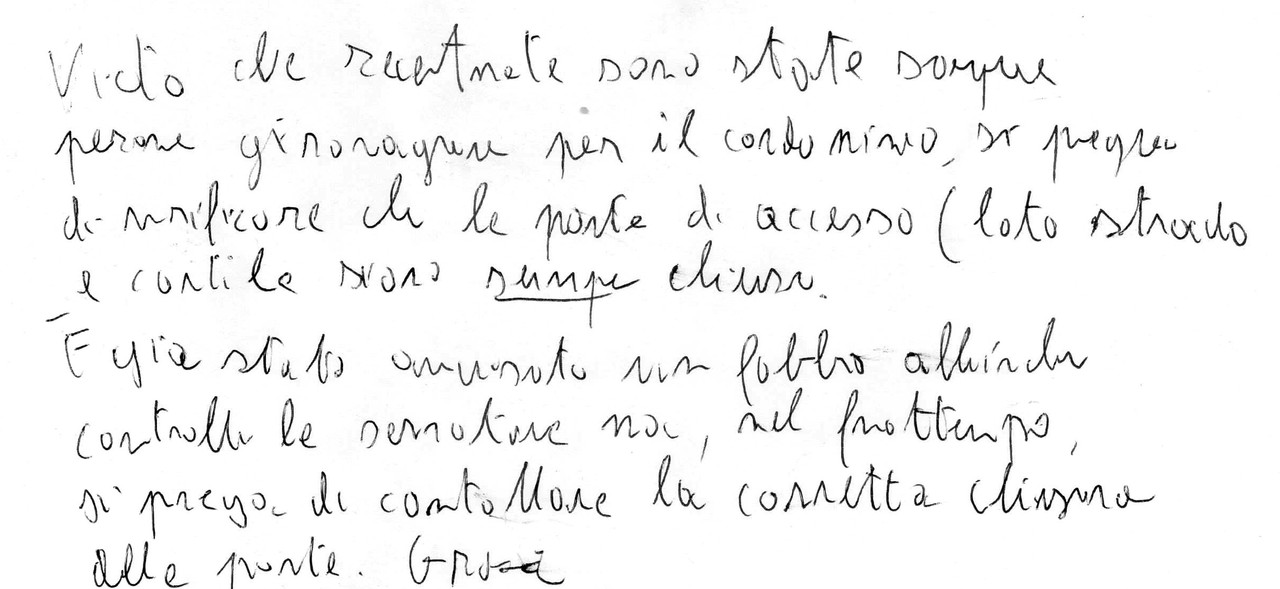 Visto che recentmete sono state sorprese
persone gironvagare per il condominio, si prega
di verificare che le porte di accesso (lato strada
e cortile siano sempre chiuse.
È già stato avvisato un fabbro affinché
controlli le serrature ma, nel frattempo,
si prega di contollare la corretta chiusura
delle porte. Grazie